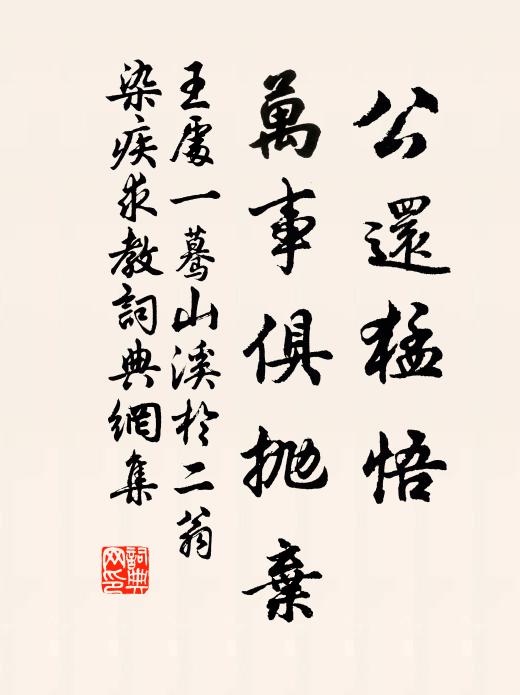 公還猛悟
萬事俱拋棄
王處一驀山溪於二翁
染疾求教詞典網集
詞典網印